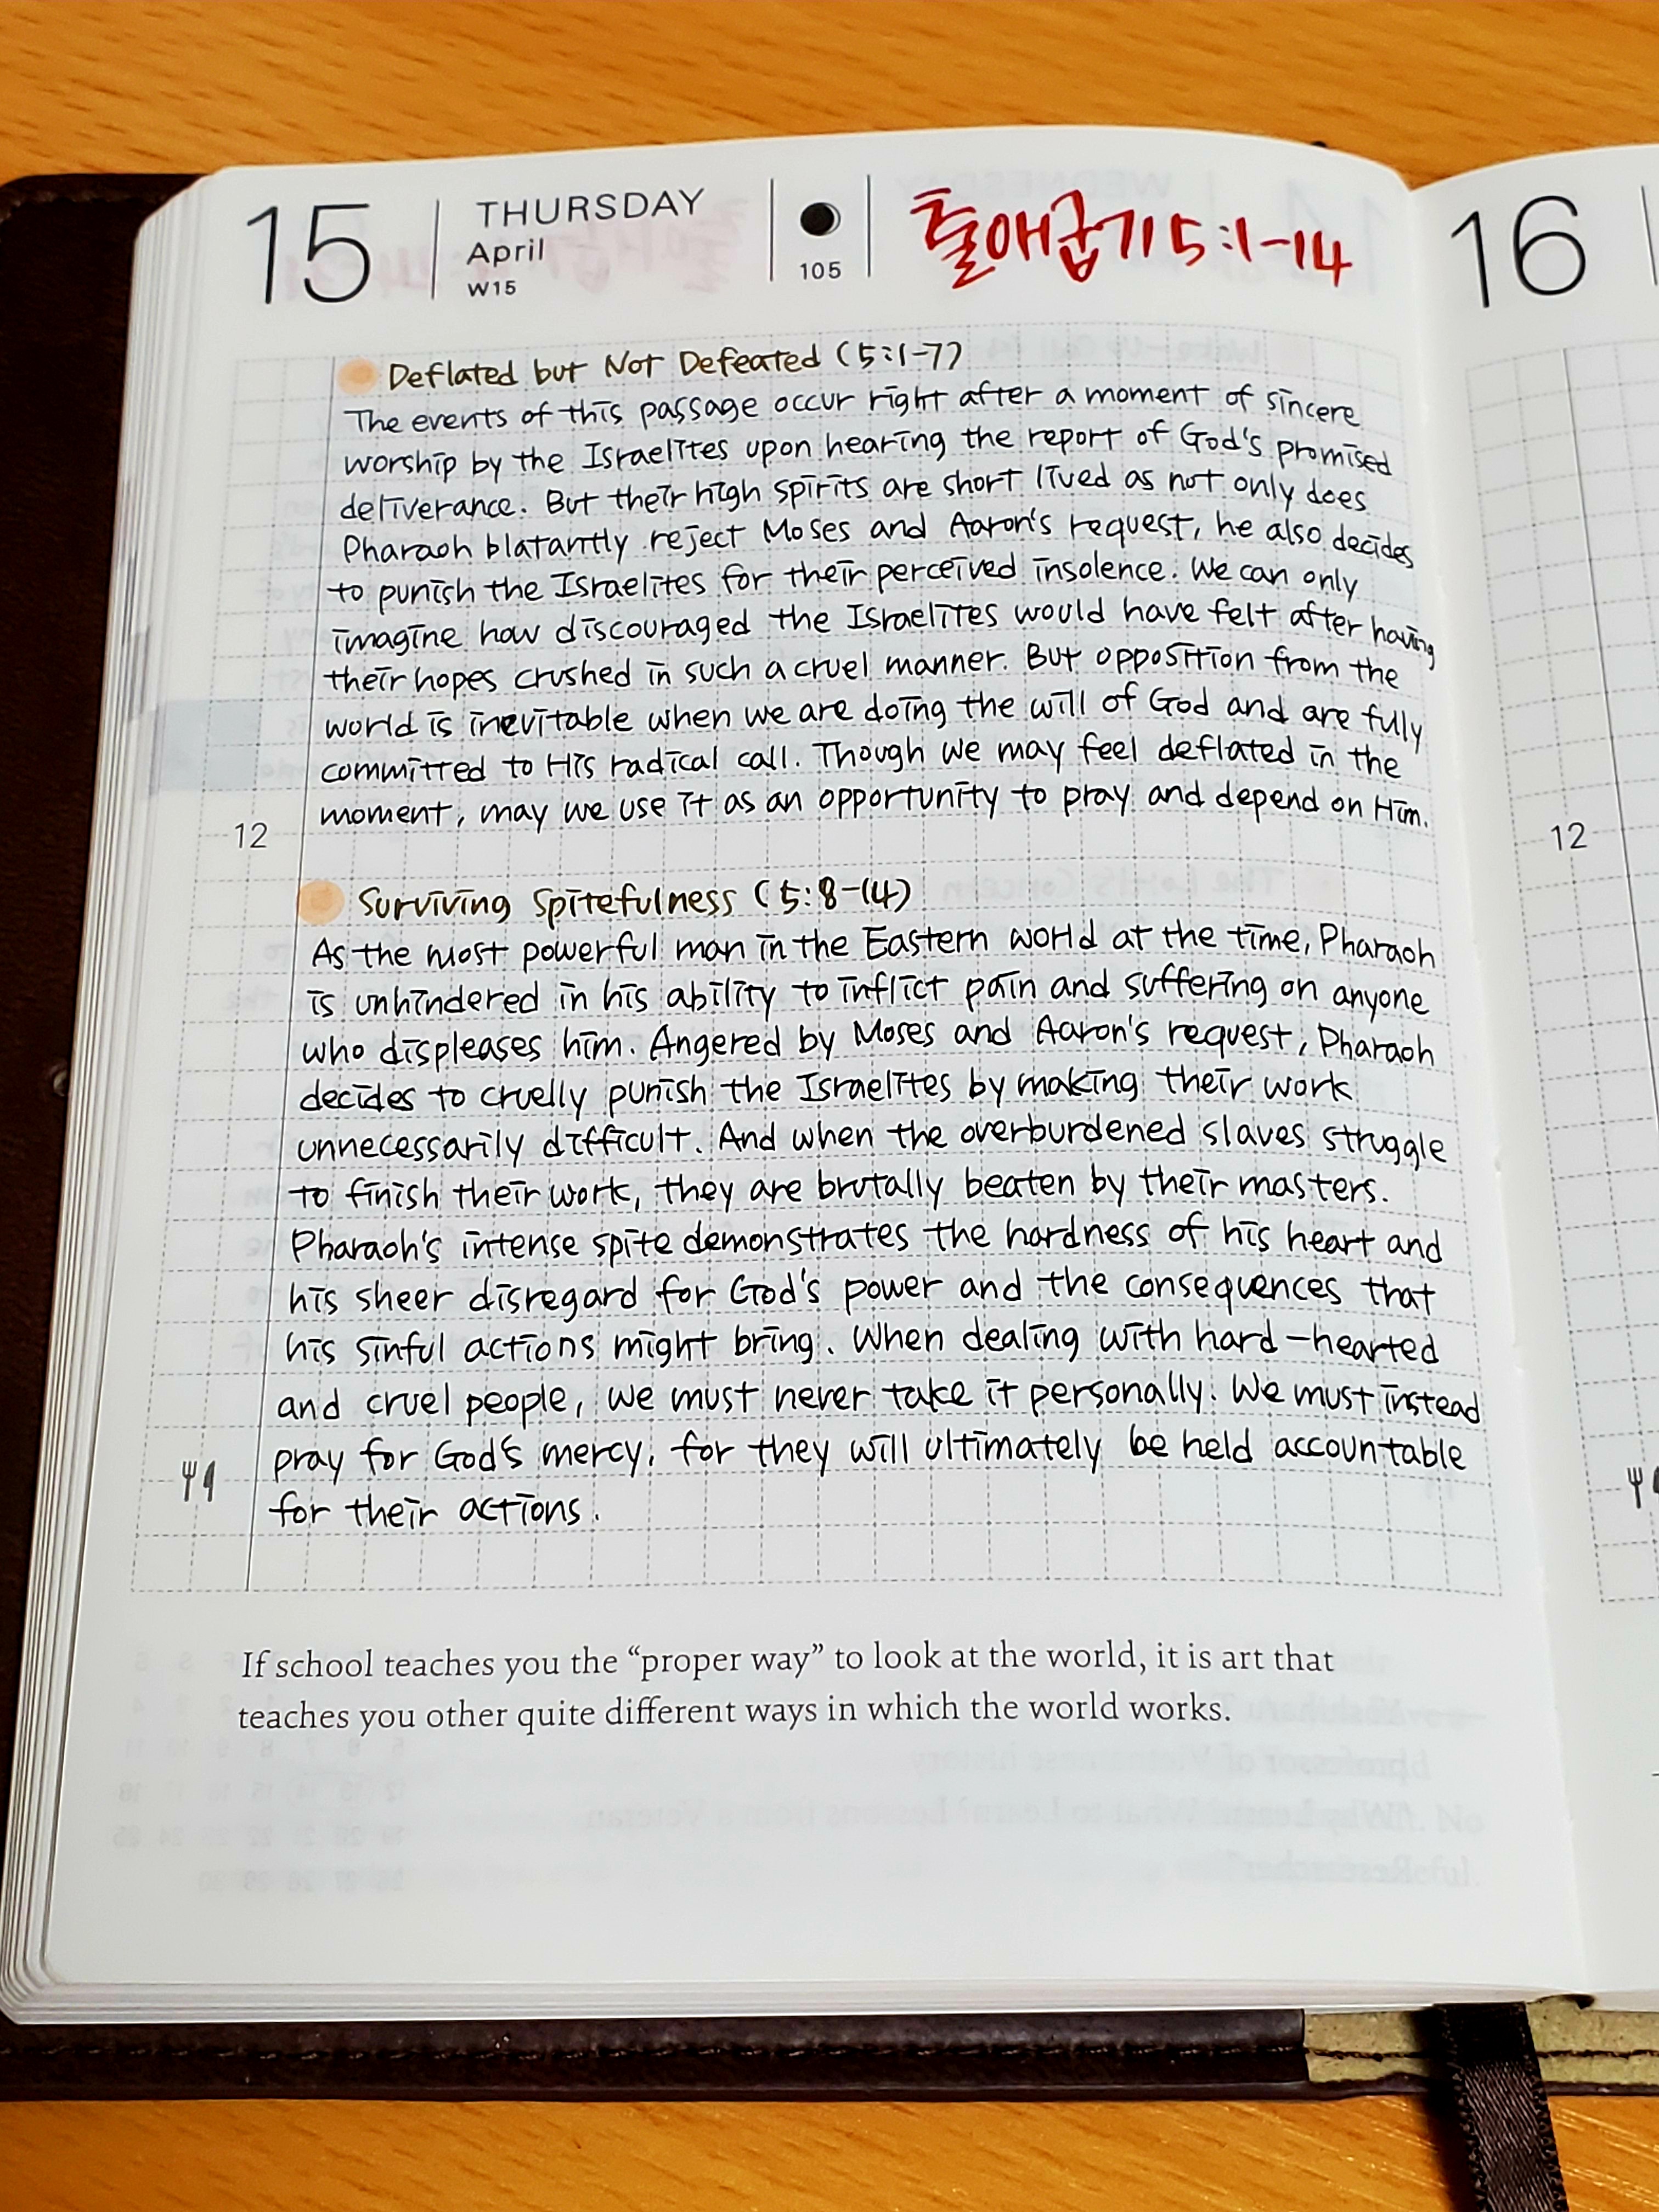 15
THURSDAY
April
W15
105
출애굽기 5:1-14
16
Deflated but Not Defeated (5:1-7)
The events of this passage occur right after a moment of sincere
worship by the Israelites upon hearing the report of God's promised
deliverance. But their high spirits are short lived as not only does
Pharaoh blatantly reject Moses and Aaron's request, he also decides
to punish the Israelites for their perceived insolence. We can only
imagine how discouraged the Israelites would have felt after having
their hopes crushed in such a cruel manner. But opposition from the
world is inevitable when we are doing the will of God and are fully
committed to His radical call. Though we may feel deflated in the
moment, may we use it as an opportunity to pray and depend on Him.
12
12
Surviving Spitefulness (5:8-14)
As the most powerful man in the Eastern world at the time, Pharaoh
is unhindered in his ability to inflict pain and suffering on anyone
who displeases him. Angered by Moses and Aaron's request, Pharaoh
decides to cruelly punish the Israelites by making their work
unnecessarily difficult. And when the overburdened slaves struggle
to finish their work, they are brutally beaten by their masters.
Pharaoh's intense spite demonstrates the hardness of his heart and
his sheer disregard for God's power and the consequences that
his sinful actions might bring. When dealing with hard-hearted
and cruel people, we must never take it personally. We must instead
pray for God's mercy, for they will ultimately be held accountable
for their actions.
If school teaches you the “proper way” to look at the world, it is art that
teaches you other quite different ways in which the world works.